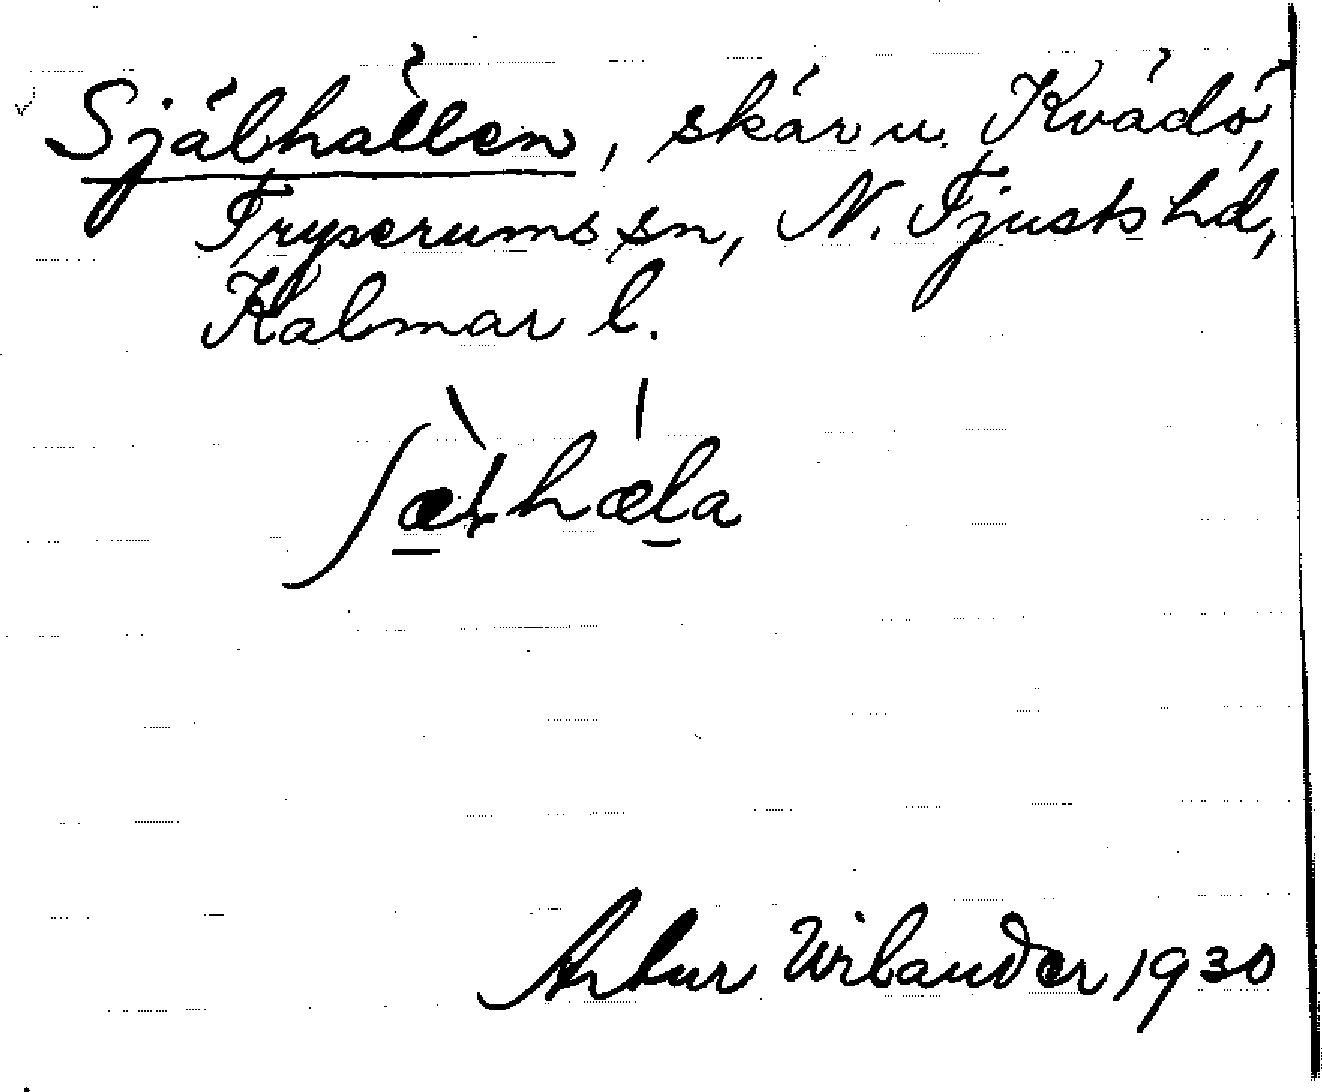 Själhällen, skär u. Kvädö,
Tryserums sn, N. Tjusts hd,
Kalmar l.
Artur Wilander 1930